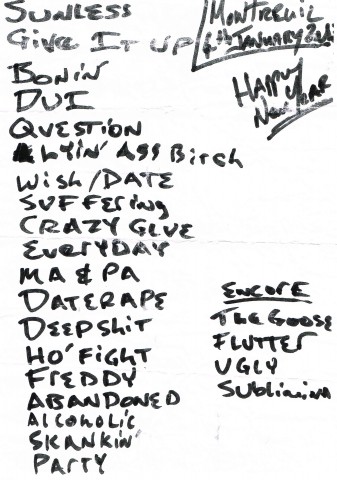 SUNLESS
GIVE IT UP
BONIN'
DUI
QUESTION
LYIN' ASS BITCH
WISH/DATE
SUFFERING
CRAZY GLUE
EVERYDAY
MA & PA
DATERAPE
DEEPSHIT
HO' FIGHT
FREDDY
ABANDONED
ALCOHOLIC
SKANKIN'
PARTY
MONTREUIL
JANUARY
HAPPY
NEW YEAR
ENCORE
THE GOOSE
FLUTTER
UGLY
SUBLIMINAL